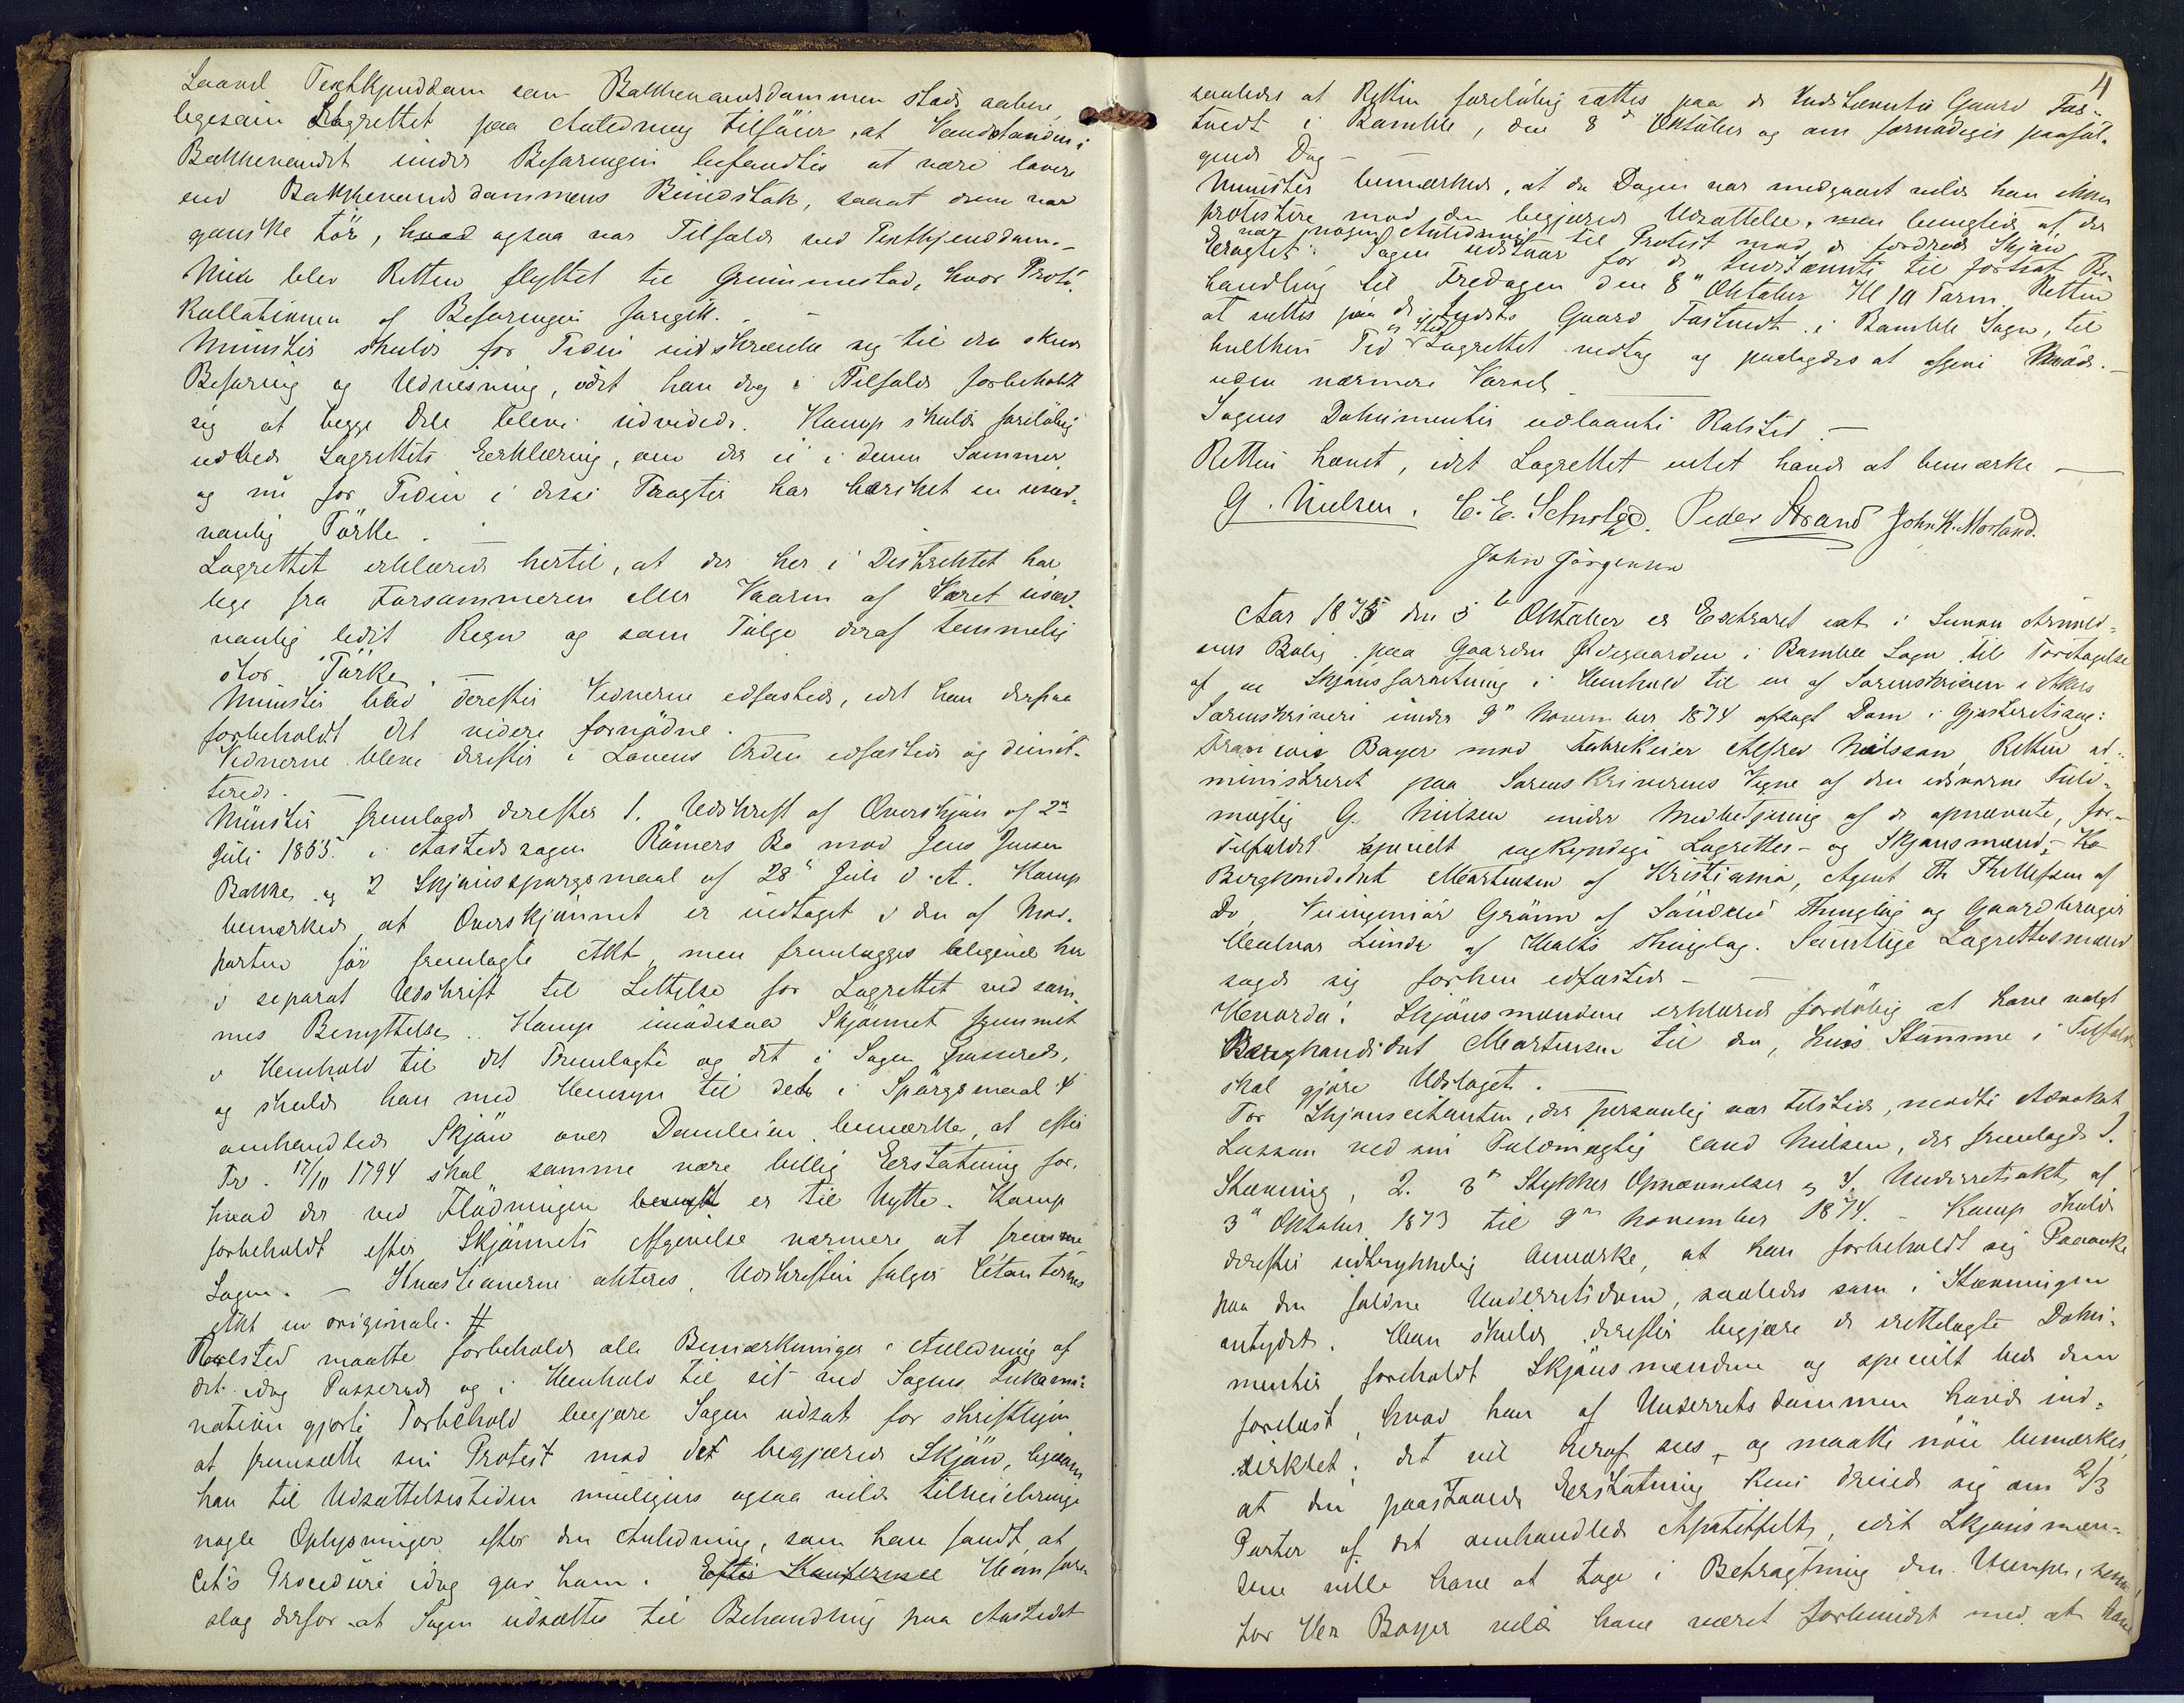 Saavel Texthjenddam som Bakkevandsdammen stode aabne
ligesaa Lagrettet paa Anledning tilföier, at Vandstanden i
Bakkevandet under Befaringen befandtes at være lavere
end Bakkevandsdammens Bundstok, saaat denne var
ganske tör, hvad ogsaa var Tilfælde ved Texthjenddam.-
Nu blev Retten flyttet til Grummestad, hvor Proto-
kollationen af Befaringen foregik. -
Münster skulde for Tiden indskrænke sig til den skede
Befaring og Udvisning, idet han dog i Tilfælde forbeholdt
sig at begge Dele bleve udvidede. Komp skulde foreløbig
udbede Lagrettets Erklæring, om der ei i denne Sommer
og nu for Tiden i disse Tragter har hersket en usæd-
vanlig Törke. -
Lagrettet erklærede hertil, at der her i Distriktet har
lige fra Forsommeren eller Vaaren af været usæd-
vanlig lidet Regn og som Fölge deraf temmelig
stor Törke. -
Münster bad derefter Vidnerne edfæstede, idet han derpaa
forbeholdt det videre fornödne.
Vidnerne bleve derefter i Lovens Orden edfæstede og dimit-
terede. -
Münster fremlagde derefter 1. Udskrift af Overskjön af 2n
Juli 1855 i Aastedssagen Römers Bo mod Jens Jensen
Bakke og 2 Skjönsspörgsmaal af 28n Juli d. A. Komp
bemærkede, at Overskjönnet er indtaget i den af Mod-
parten för fremlagte Akt, men fremlægges alligevel her
i separat Udskrift til Lettelse for Lagrettet ved sam-
mes Benyttelse. Komp imödesaa Skjönnet fremmet
i Henhold til det Fremlagte og det i Sagen Passerede,
og skulde han med Hensyn til det i Spörgsmaal 4
omhandlede Skjön over Damleien bemærke, at efter
Fr. 17/11 1794 skal samme være billig Erstatning for,
hvad der ved Flödningen er til Nytte. Komp
forbeholdt efter Skjönnets Afgivelse nærmere at fremme
Sagen. - Kvæstionerne akteres, Udskriften fölger Citanternes
Akt in originale. #
Rolsted maatte forbeholde alle Bemærkninger i Anledning af
det idag Passerede og i Henhold til sit ved Sagens Inkami-
nation gjorte Forbehold begjære Sagen udsat for skriftligen
at fremsætte sin Protest mod det begjærede Skjön, ligesom
han til Udsættelsestiden muligens ogsaa vilde tilveiebringe
nogle Oplysninger efter den Anledning, som han fandt, at
Cit's Procedüre idag gav ham. Efter Konference Han fore-
slog derfor at Sagen udsættes til Behandling paa Aastedet
4
saaledes at Retten foreløbig sættes paa de Indstævnte Gaard Fos-
tvedt i Bamble, den 8de Oktober og om fornödiges paaföl-
gende Dag -
Münster bemærkede, at da Dagen var medgaaet vilde han ikke
protestere mod den begjærede Udsættelse, men benegtede at der
var nogen Anledning til Protest mod de fordrede Skjön
Eragtet: Sagen udstaar for de Indstævnte til fortsat Be-
handling til Fredagen den 8n Oktober Kl 10 Form. Retten
at sættes paa de Indsts Gaard Fostvedt i Bamble Sogn, til
hvilken Tid og Sted Lagrettet vedtog og paalagdes at afgive Möde.-
uden nærmere Varsel. -
Sagens Dokumenter udlaante Rolsted. -
Retten hævet, idet Lagrettet intet havde at bemærke -
G. Nielsen. C. E. Peder Strand John K. Morland.
John Jörgensen
Aar 1875 den 5te Oktober er Extraret sat i Simon Arnold-
sens Bolig paa Gaarden Ødegaarden i Bamble Sogn til Foretagelse
af en Skjönsforretning i Henhold til en af Sorenskriveren i Akers
Sorenskriveri under 9n November 1874 afsagt Dom i Gjesteretssag:
Francois Bayer mod Fabrikeier Alfred Nilsson, Retten ad-
ministreret paa Sorenskriverens Vegne af den edsvorne Fuld-
mægtig G. Nielsen under Medbetjening af de opnævnte, for-
Tilfældet specielt sagkyndige Lagrettes- og Skjönsmænd:
Bergkandidat Martensen af Kristiania, Agent Th Thellefsen af
Do Veiingeniör Grönn af Sandöe Thinglag og Gaardbruger
Halvor Lunde af Holts Thinglag. Samtlige Lagrettesmænd
sagde sig forhen edfæstede -
Hvorda: Skjönsmændene erklærede foreløbig at have valgt
Bergkandidat Martensen til den, hvis Stemme i Tilfælde
skal gjöre Udslaget. -
For Skjönscitanten, der personlig var tilstede, mödte Advokat
Lasson ved sin Fuldmægtig cand Nielsen, der fremlagde 1.
Stævning, 2. 3de Stykker Opnævnelser og 4, Underretsakt af
3n Oktober 1873 til 9n November 1874. - Komp skulde
derefter udtrykkelig bemærke, at han forbeholdt sig Paaanke
paa den faldne Underretsdom, saaledes som i Stævningen
antydet. Han skulde derefter begjære de irettelagte Doku-
menter foreholdt Skjönsmændene og specielt bede dem
forelæst, hvad han af Underretsdommen havde ind-
cirklet; det vil deraf sees, og maatte nöie bemærkes,
at den paastaaede Erstatning kun dreiede sig om 2/3
Parter af det omhandlede Apatitfelt, idet Skjönsmæn-
dene ville have at tage i Betragtning den Ulempe, som
for Hr Bayer vilde have været forbundet med at have